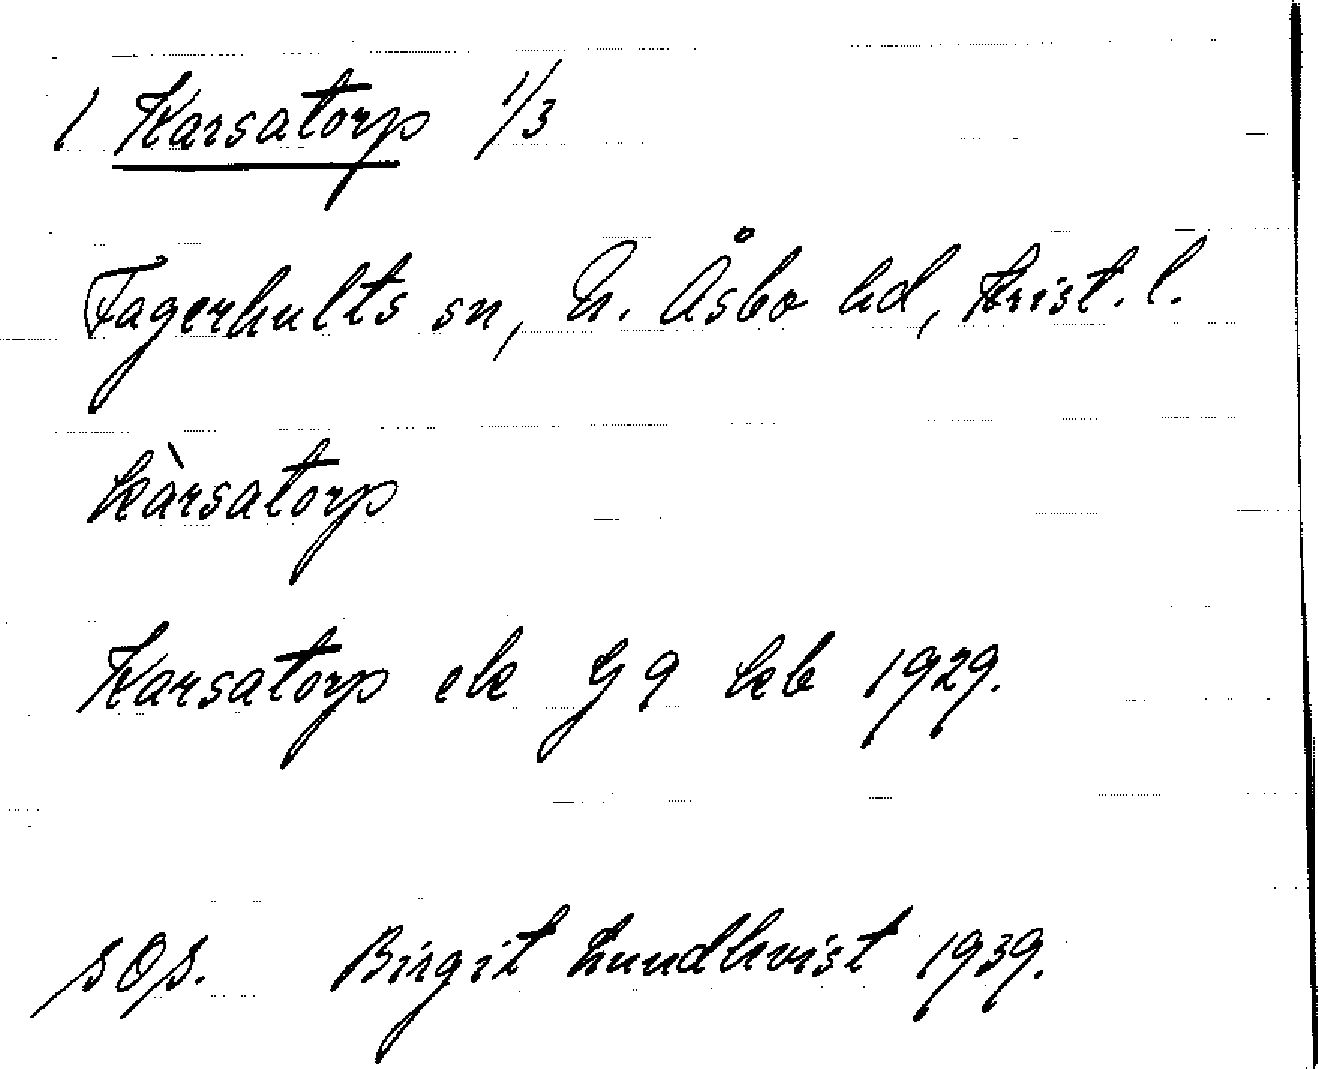 1 Karsatorp 1/3
Fagerhults sn, N. Åsbo hd, Krist. l.
kàrsatorp
Karsatorp ek G 9 kb 1929.
SOS. Birgit Lundkvist 1939.